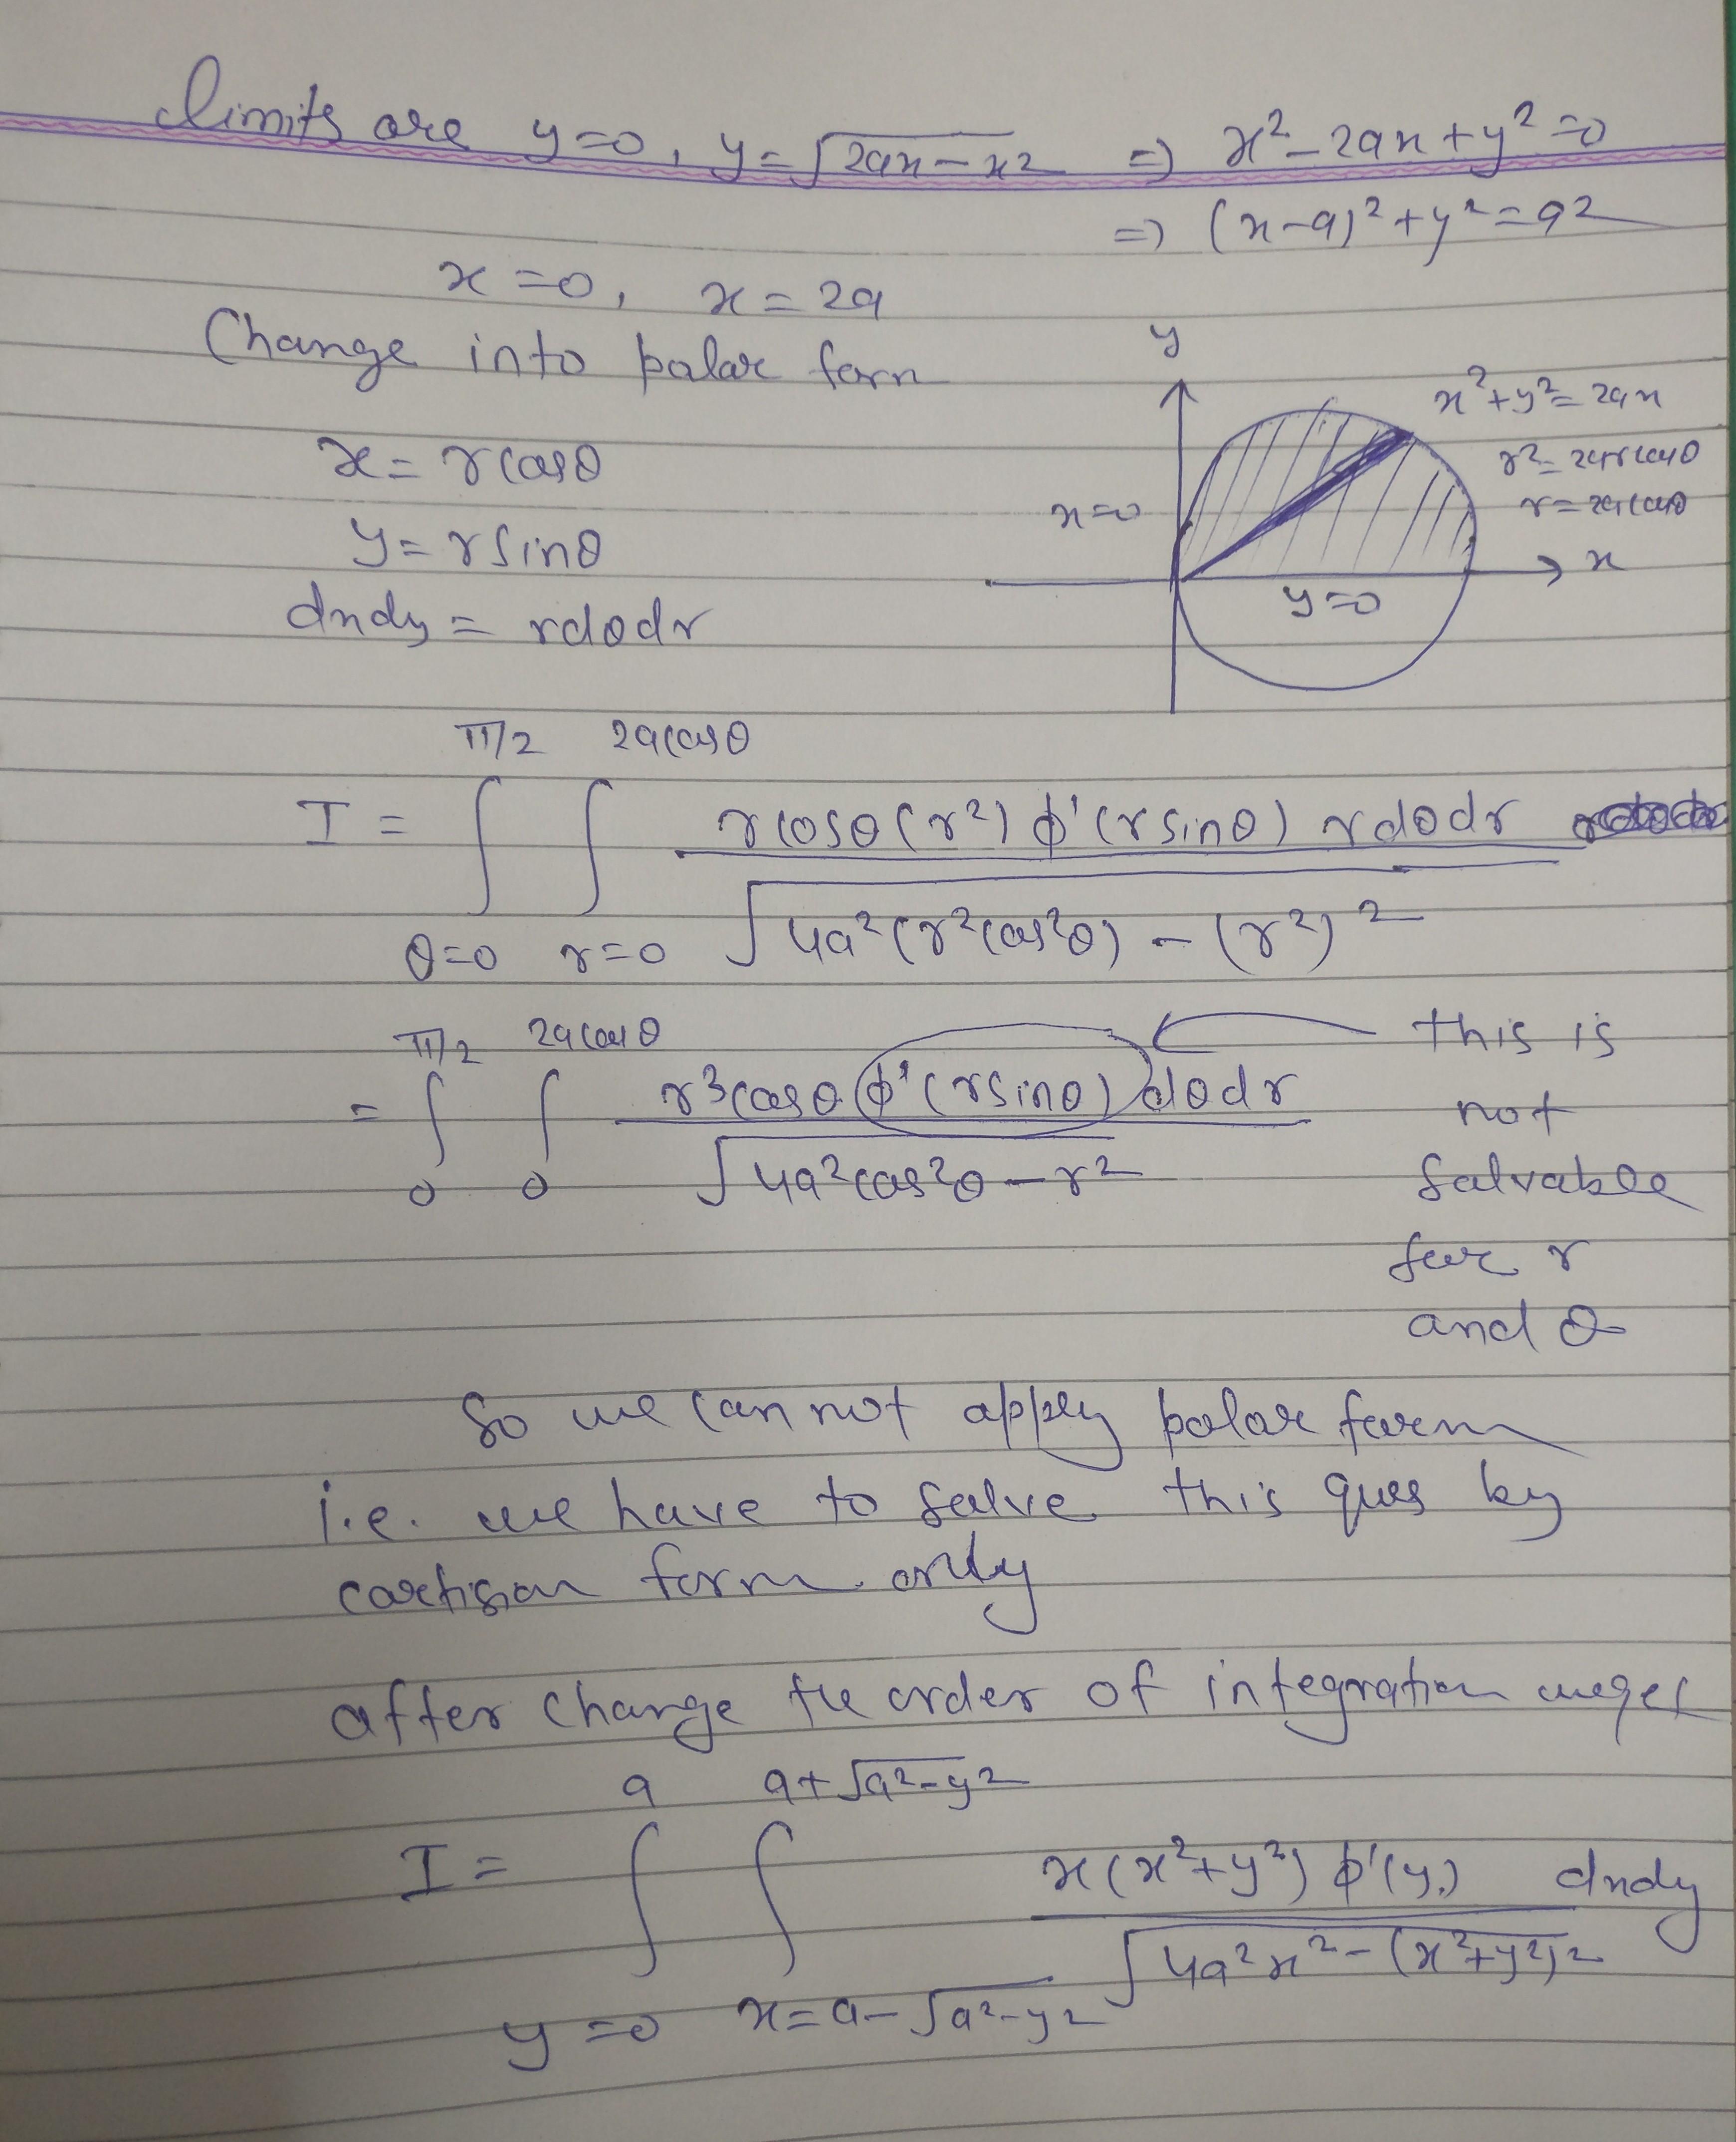 limits are y=0, y=√(2ax-x2) ⇒ x²-2ax+y²=0
⇒ (x-a)²+y²=a2
x=0, x=2a
Change into polar form
x=rcosθ
y=rsinθ
dxdy = rdθdr
y
x²+y²=2ax
r²=2arcosθ
r=2acosθ
x=0
x
y=0
π/2 2acosθ
I = ∫ ∫ rcosθ(r²) ϕ'(rsinθ) rdθdr
θ=0 r=0 √(4a²(r²cos²θ) - (r²)²)
π/2 2acosθ
this is
= ∫ ∫ r3cosθ ϕ'(rsinθ) dθdr
not
0 0 √(4a²cos²θ-r²)
solvable
for r
and θ
So we can not apply polar form
i.e. we have to solve this ques by
cartisian form only
after change the order of integration weget
a a+√(a2-y2)
I = ∫ ∫ x(x²+y²) ϕ'(y) dxdy
y=0 x=a-√(a²-y2) √(4a²x²-(x²+y²)2)